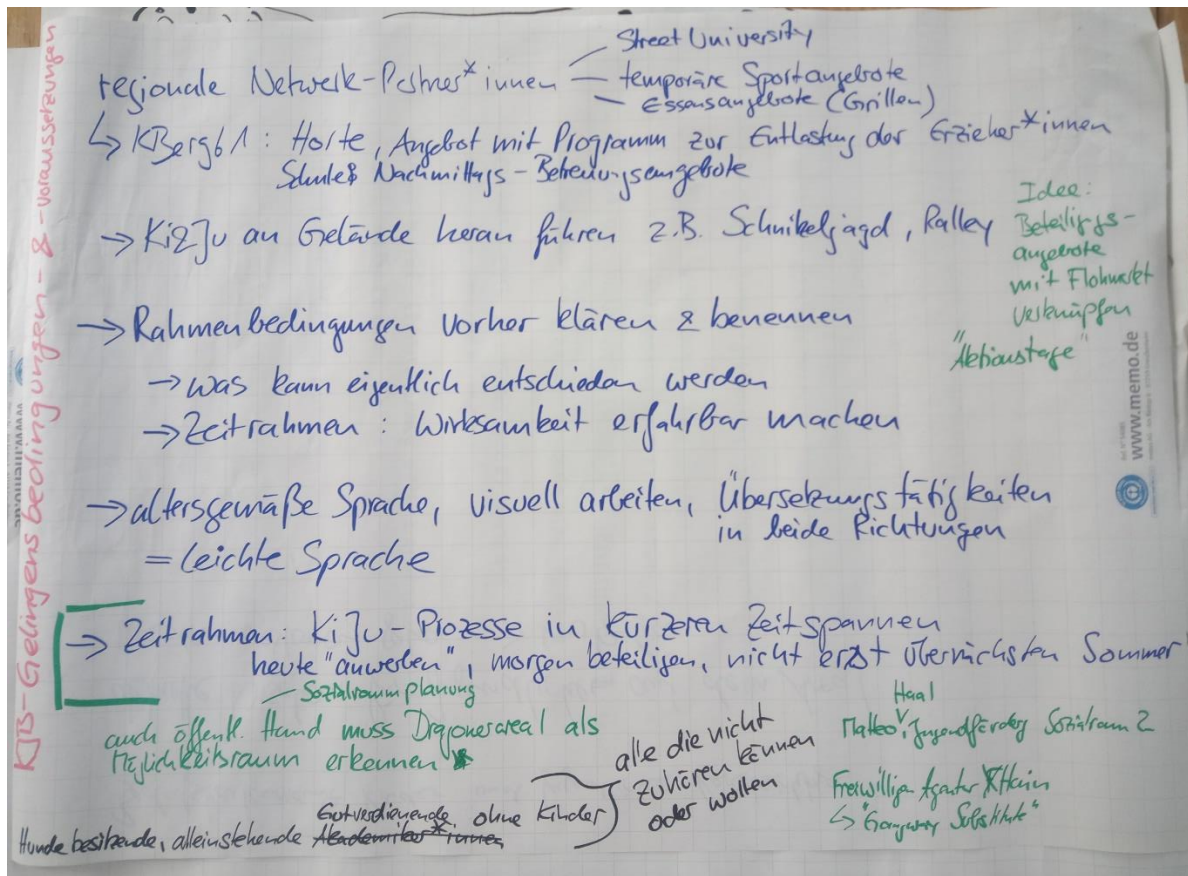 KJB-Gelingensbedingungen - & -voraussetzungen
regionale Netwerk-Partner*innen
Street University
temporäre Sportangebote
Essensangebote (Grillen)
↳ KBerg61: Horte, Angebot mit Programm zur Entlastung der Erzieher*innen
Schule& Nachmittags-Betreuungsangebote
→ Ki&Ju an Gelände heran führen z.B. Schnikeljagd, Ralley
Idee:
Beteiliggs-
angebote
mit Flohmarkt
verknüpfen
"Aktionstage"
→ Rahmenbedingungen vorher klären & benennen
→ was kann eigentlich entschieden werden
→ Zeitrahmen: Wirksamkeit erfahrbar machen
www.memo.de
→ altersgemäße Sprache, visuell arbeiten, Übersetzungstätigkeiten
in beide Richtungen
= leichte Sprache
→ Zeitrahmen: KiJu-Prozesse in kürzeren Zeitspannen
heute "anwerben", morgen beteiligen, nicht erst übernächsten Sommer
- Sozialraumplanung
auch öffentl. Hand muss Dragonerareal als
Möglichkeitsraum erkennen
alle die nicht
zuhören können
oder wollen
Matteo, Jugendförderg Sozialraum 2
Freiwilligen Agentur
↳
Gutverdienende, ohne Kinder
Hunde besitzende, alleinstehende Akademiker*innen